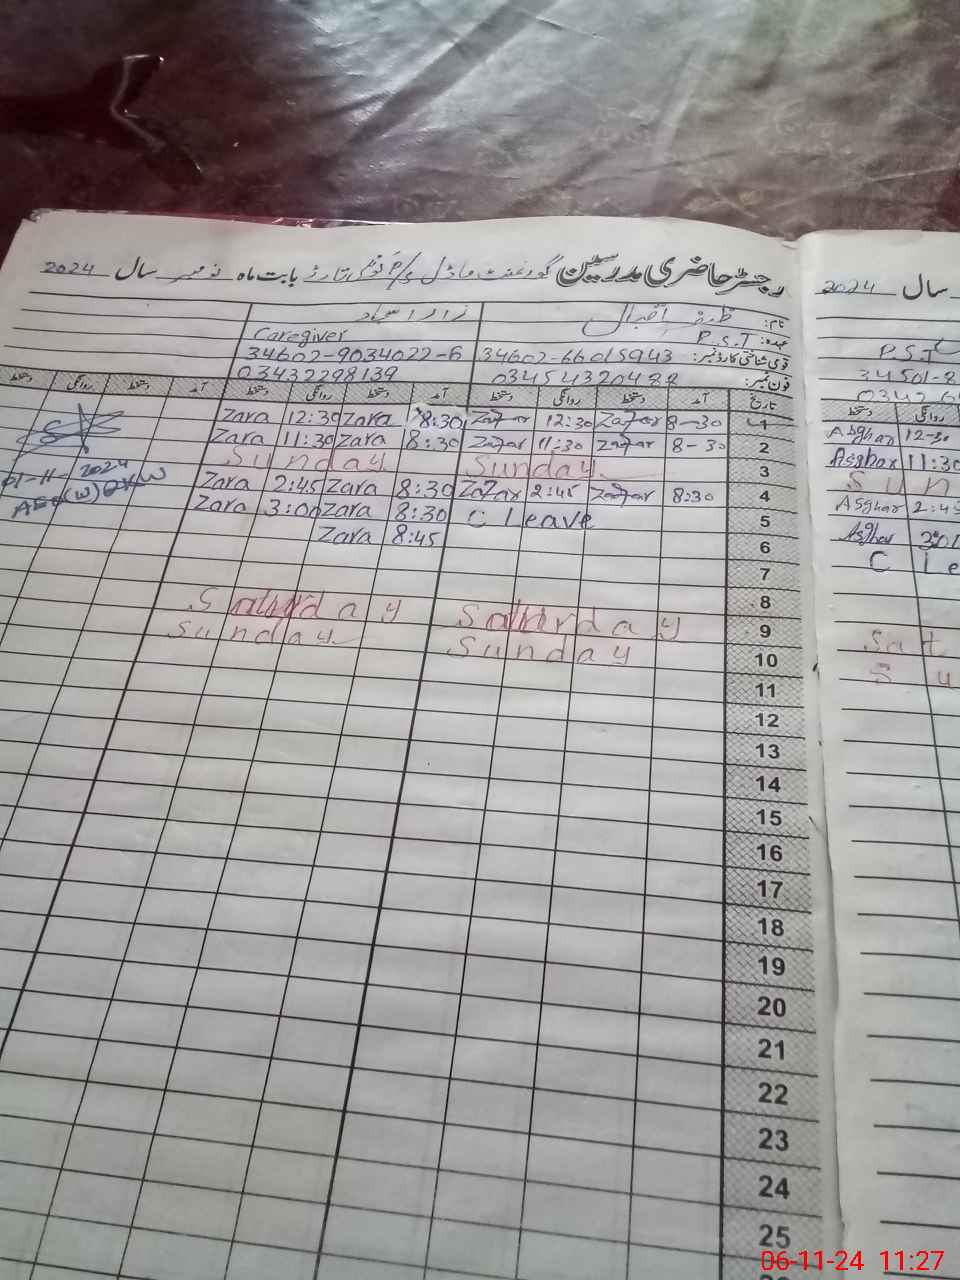 رجسٹر حاضری مدرسین گورنمنٹ ماڈل بابت ماہ نومبر سال 2024
نام: ظفر اقبال
عہدہ: P.S.T Caregiver
قومی شناختی کارڈ نمبر: 34602-66015943 34602-9034022-6
فون نمبر: 03454320488 03432298139
تاریخ آمد دستخط روانگی دستخط آمد دستخط روانگی دستخط آمد دستخط روانگی دستخط
1 8-30 Zafar 12:30 Zafar 8:30 Zara 12:30 Zara
2 8-30 Zafar 11:30 Zafar 8:30 Zara 11:30 Zara
3 Sunday Sunday
4 8:30 Zafar 2:45 Zafar 8:30 Zara 2:45 Zara
5 C Leave 8:30 Zara 3:00 Zara
6 8:45 Zara
7
8
9 Saturday Saturday
10 Sunday Sunday
11
12
13
14
15
16
17
18
19
20
21
22
23
24
25
01-11-2024
سال 2024
P.S.T
34501-8
دستخط روانگی
Asghar 12-30
Asghar 11:30
Sun
Asghar 2:45
Asghar
C Le
Sat
Su
06-11-24 11:27